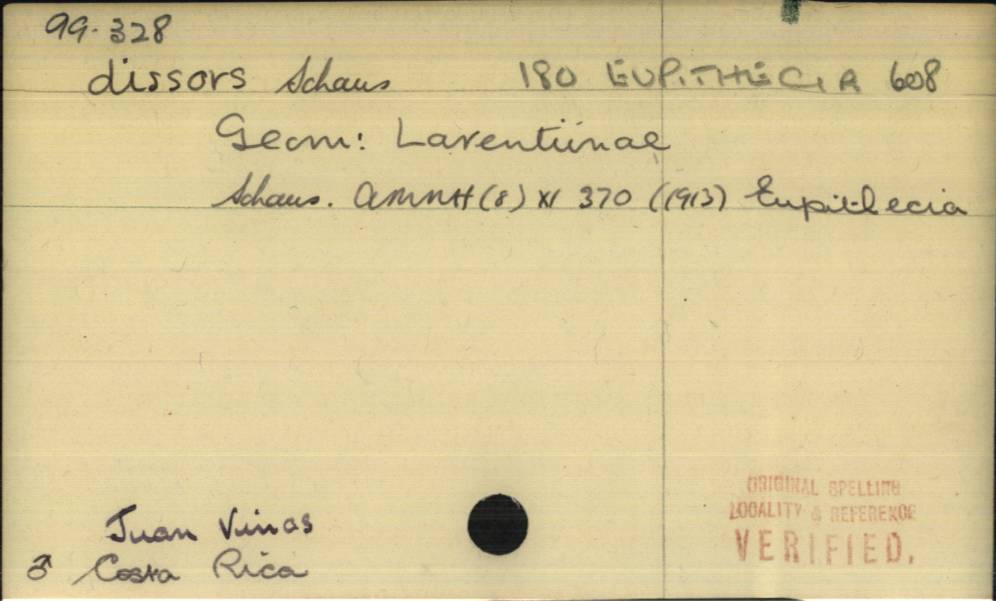 99.328
dissors Schaus 180 EUPITHECIA 608
Geom: Larentiinae
Schaus. AMNH (8) XI 370 (1913) Eupithecia
Juan Vinas
♂ Costa Rica
ORIGINAL SPELLING
LOCALITY & REFERENCE
VERIFIED.